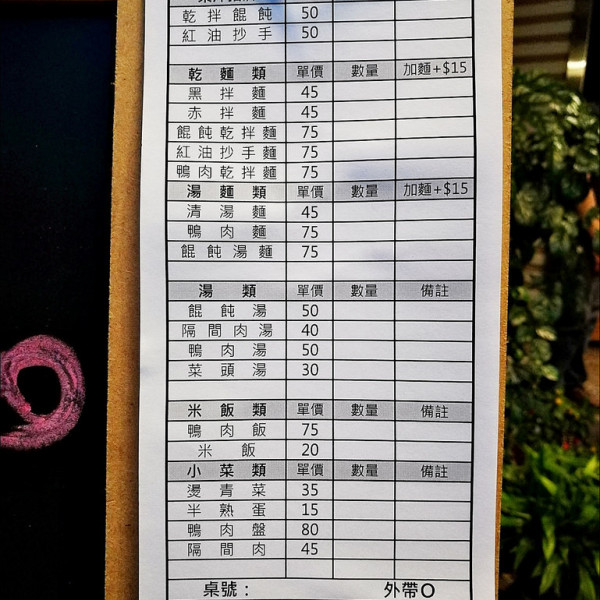 乾拌餛飩 50
紅油抄手 50
乾麵類 單價 數量 加麵+$15
黑拌麵 45
赤拌麵 45
餛飩乾拌麵 75
紅油抄手麵 75
鴨肉乾拌麵 75
湯麵類 單價 數量 加麵+$15
清湯麵 45
鴨肉麵 75
餛飩湯麵 75
湯類 單價 數量 備註
餛飩湯 50
隔間肉湯 40
鴨肉湯 50
菜頭湯 30
米飯類 單價 數量 備註
鴨肉飯 75
米飯 20
小菜類 單價 數量 備註
燙青菜 35
半熟蛋 15
鴨肉盤 80
隔間肉 45
桌號： 外帶O